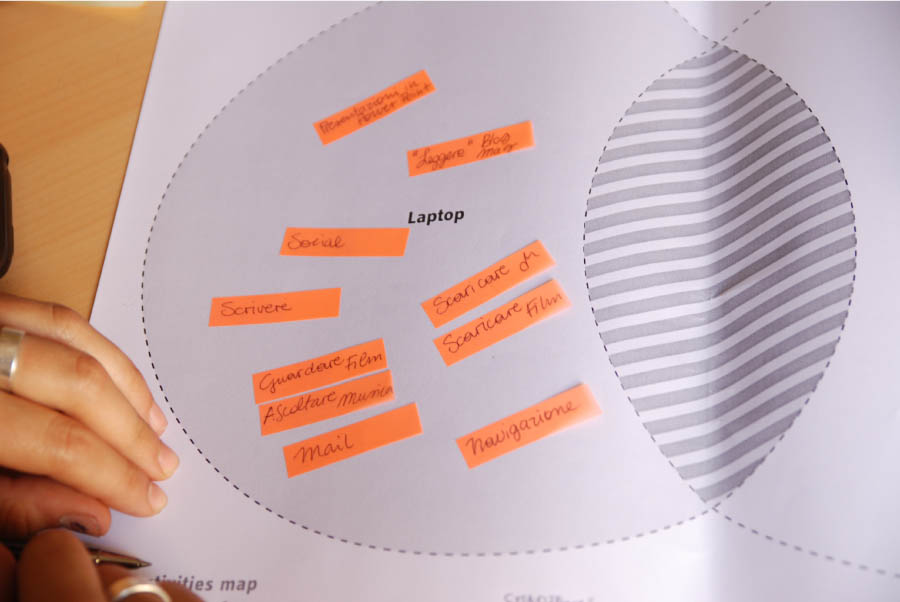 Presentazioni in
Power Point
"Leggere" Blog
Mail
Laptop
Social
Scrivere
Scaricare
Scaricare Film
Guardare Film
Ascoltare Musica
Mail
Navigazione
activities map